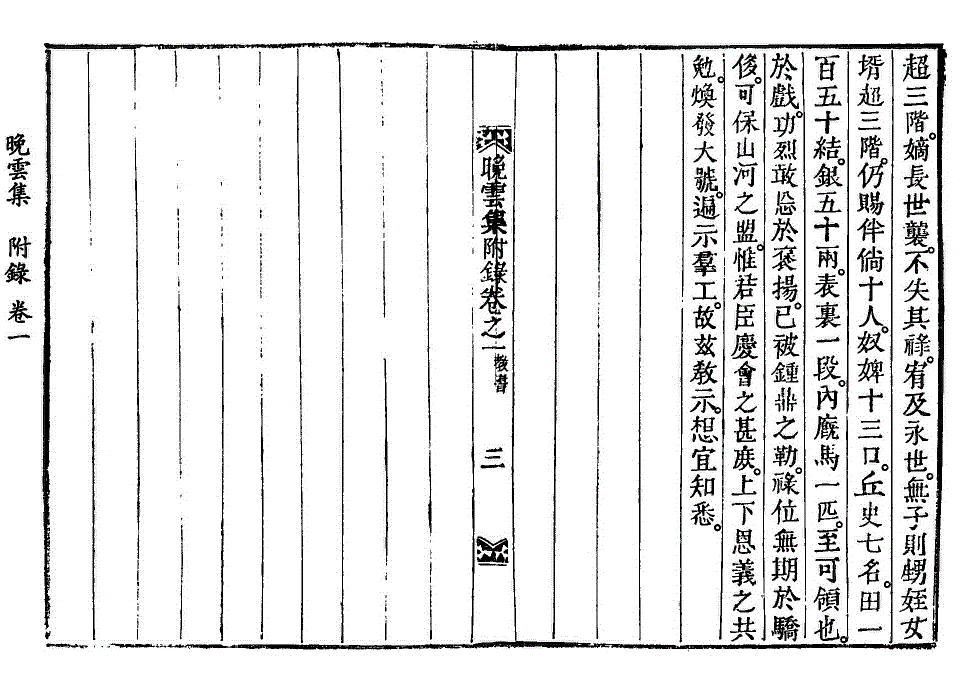 超三階。嫡長世襲。不失其祿。宥及永世。無子則甥姪女
壻超三階。仍賜伴倘十人。奴婢十三口。丘史七名。田一
百五十結。銀五十兩。表裏一段。內廐馬一匹。至可領也。
於戲。功烈敢忘於褒揚。已被鍾鼎之勒。祿位無期於驕
侈。可保山河之盟。惟若臣慶會之甚疾。上下恩義之共
勉。煥發大號。遍示羣工。故玆敎示。想宜知悉。
晚雲集附錄卷之一 敎書 三
晚雲集 附錄 卷一